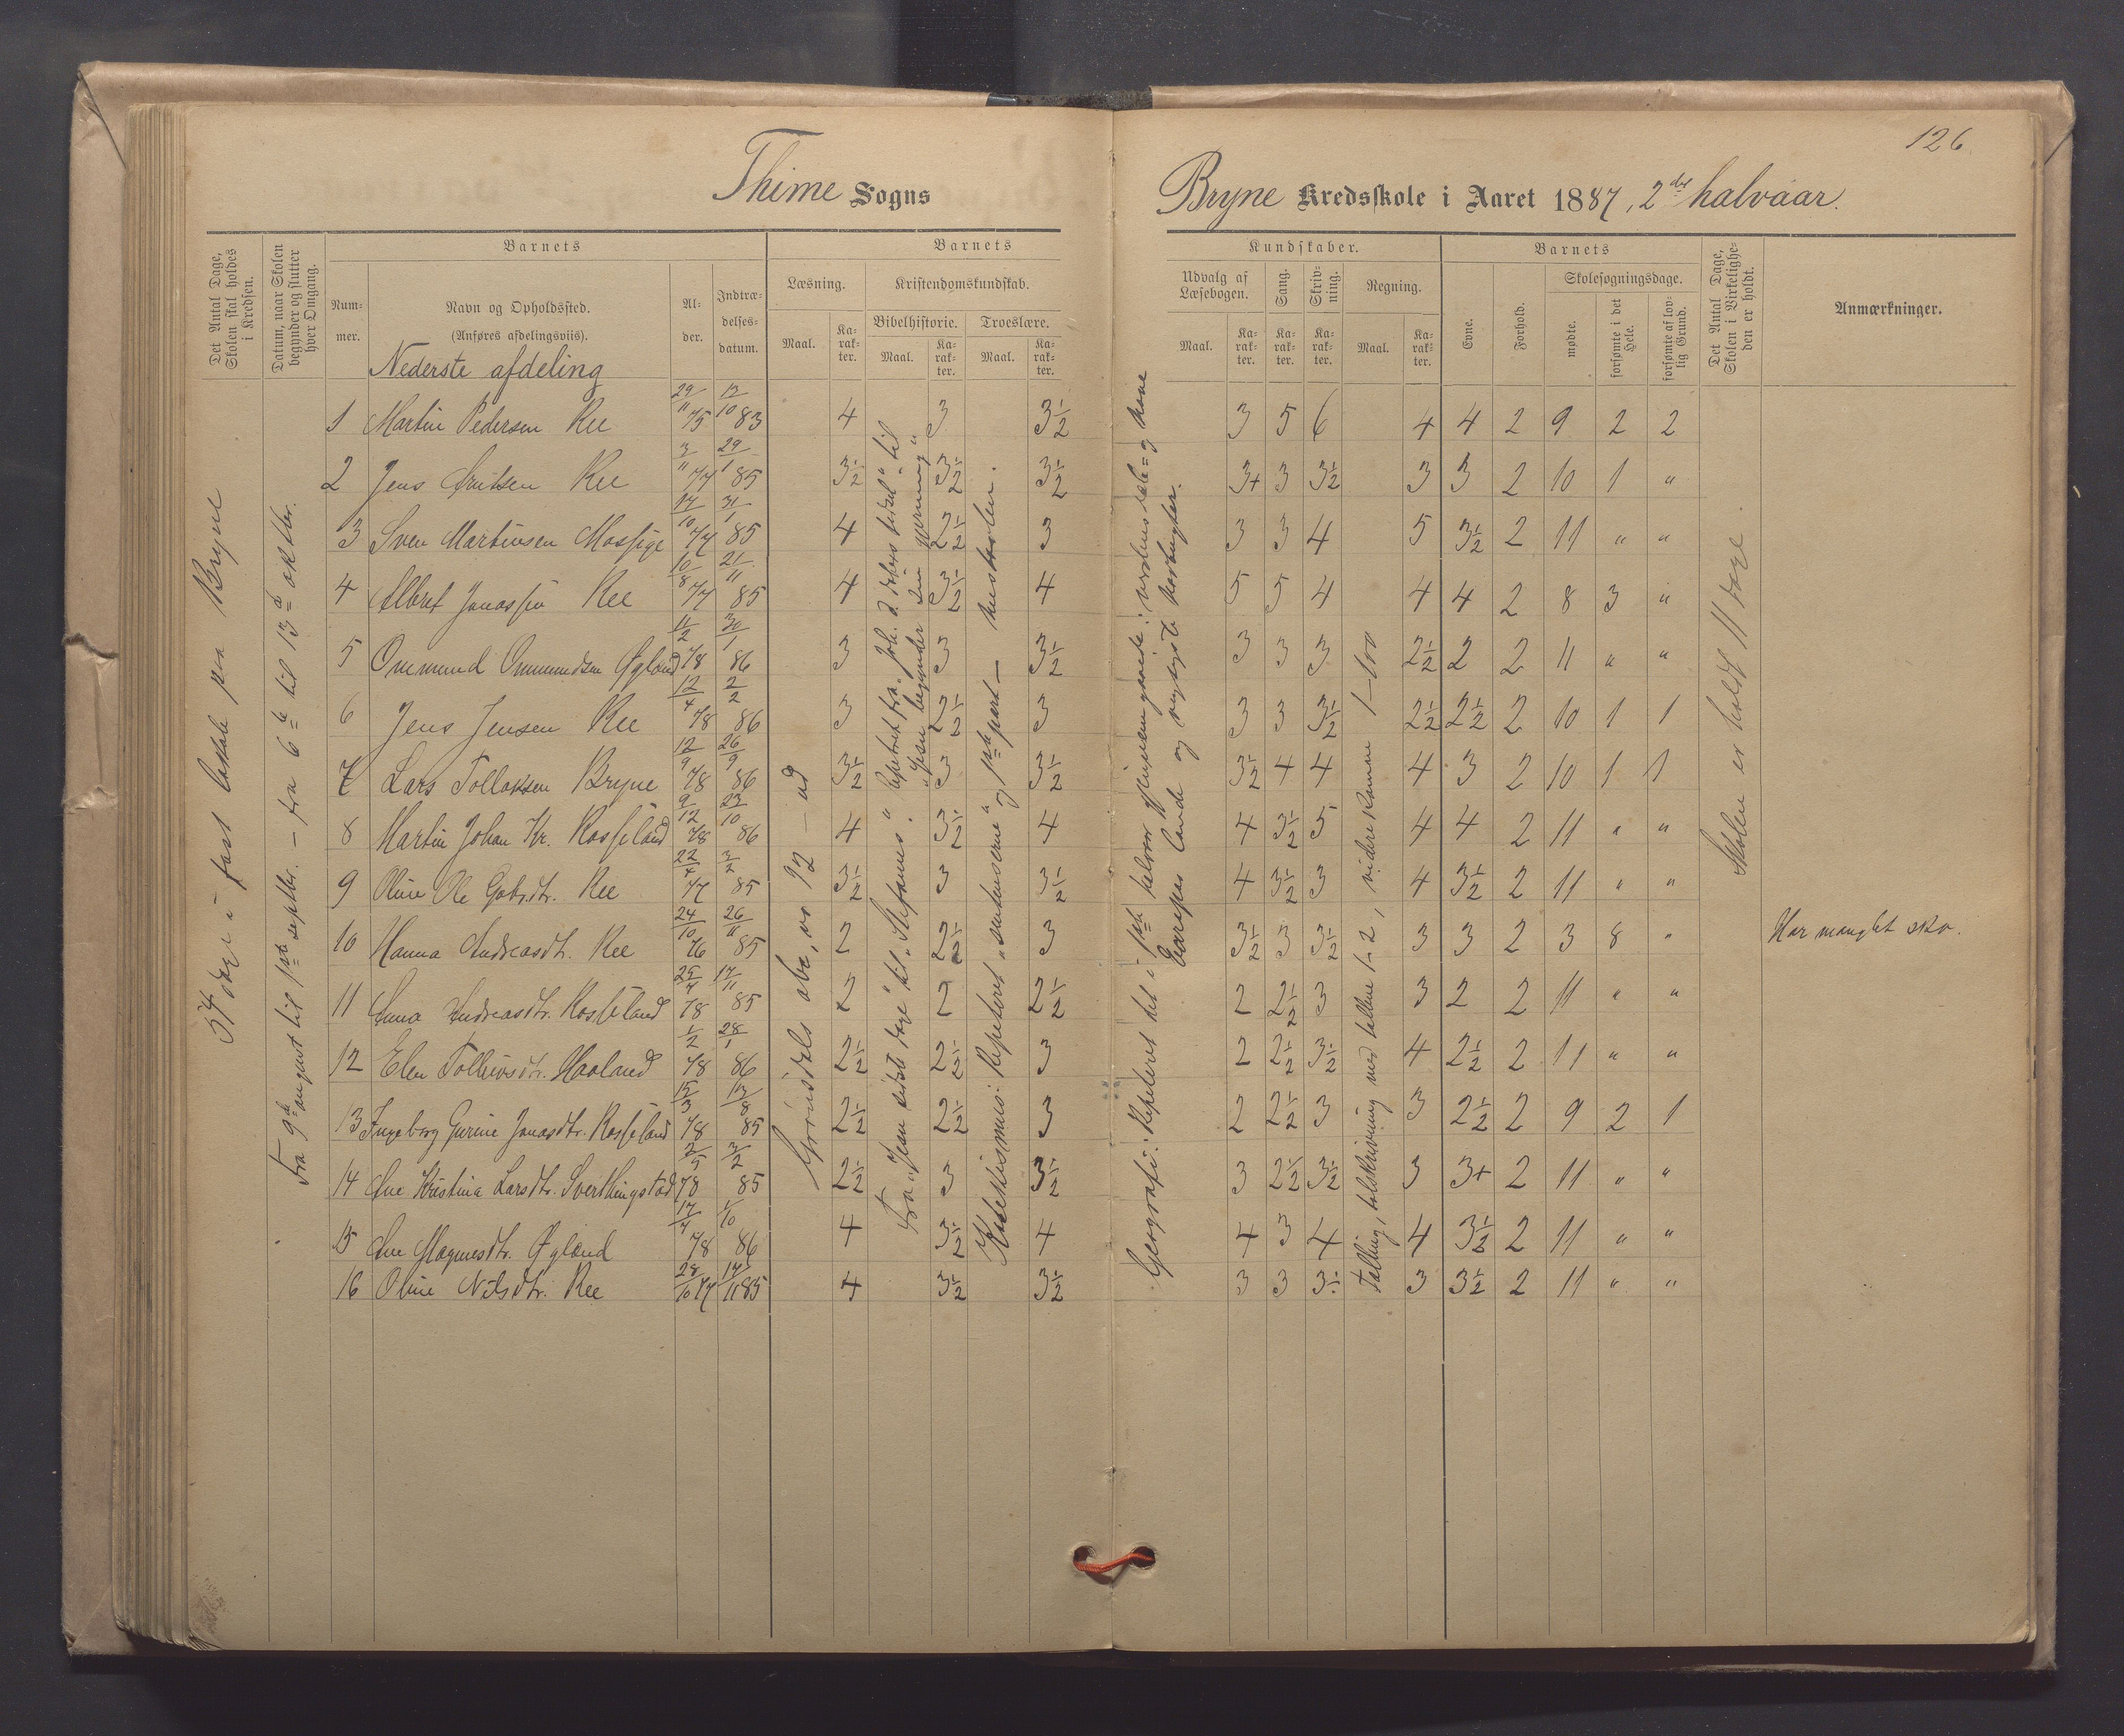 126
Thime Sogns
Bryne Kredsskole i Aaret 1887, 2det halvaar.
Det Antal Dage, Skolen skal holdes i Kredsen.
Datum, naar Skolen begynder og slutter hver Omgang.
Barnets
Nummer.
Navn og Opholdssted.
(Anføres afdelingsviis).
Alder.
Indtrædelsesdatum.
Barnets
Læsning.
Maal.
Karakter.
Kristendomskundskab.
Bibelhistorie.
Maal.
Karakter.
Troeslære.
Maal.
Karakter.
Kundskaber.
Udvalg af Læsebogen.
Maal.
Karakter.
Sang.
Karakter.
Skrivning.
Karakter.
Regning.
Maal.
Karakter.
Barnets
Evne.
Forhold.
Skolesøgningsdage.
mødte.
forsømte i det Hele.
forsømte af lovlig Grund.
Det Antal Dage, Skolen i Virkeligheden er holdt.
Anmærkninger.
Nederste afdeling
1 Martin Pedersen Ree 29/11 75 12/10 83 4 3 3½ 3 5 6 4 4 2 9 2 2
2 Jens Ree 3/11 77 29/1 85 3½ 3½ 3½ 3+ 3 3½ 3 3 2 10 1 "
3 Sven Martinsen Mossige 14/10 77 31/1 85 4 2½ 3 3 3 4 5 3½ 2 11 " "
4 Albret Jonassen Ree 10/8 77 21/11 85 4 3½ 4 5 5 4 4 4 2 8 3 "
5 Ommund Ommundsen Øgland 11/2 78 30/1 86 3 3 3½ 3 3 3 2½ 2 2 11 " "
6 Jens Jensen Ree 12/4 78 2/2 86 3 2½ 3 3 3 3½ 2½ 2½ 2 10 1 1
7 Lars Tollaksen Bryne 12/9 78 26/9 86 3½ 3 3½ 3½ 4 4 4 3 2 10 1 1
8 Martin Johan Kr. Rosseland 9/12 78 23/10 86 4 3½ 4 4 3½ 5 4 4 2 11 " "
9 Oline Ole Gabrdtr. Ree 22/4 77 3/2 85 3½ 3 3½ 4 3½ 3 4 3½ 2 11 " "
10 Hanna Andreasdt. Ree 24/10 76 26/11 85 2 2½ 3 3½ 3 3½ 3 3 2 3 8 " Har manglet sko.
11 Anna Andreasdtr. Rosseland 25/4 78 17/11 85 2 2 2½ 2 2½ 3 3 2 2 11 " "
12 Elen Tollivsdtr. Haaland 1/2 78 28/1 86 2½ 2½ 3 2 2½ 3½ 4 2½ 2 11 " "
13 Ingeborg Gurine Jonasdtr. Rosseland 15/3 78 12/8 85 2½ 2½ 3 2 2½ 3 3 2½ 2 9 2 1
14 Ane Kristina Larsdtr. Sverthingstad 2/5 78 3/2 85 2½ 3 3½ 3 2½ 3½ 3 3+ 2 11 " "
15 Ane Magnesdtr. Øgland 17/4 78 1/10 86 4 3½ 4 4 3 4 4 3½ 2 11 " "
16 Oline Nilsdtr. Ree 28/10 77 17/11 85 4 3½ 3½ 3 3 3½ 3 3½ 2 11 " "
54 dage i fast lokale paa Bryne
Fra 9de august til 1ste septbr. — fra 6te til 13de oktbr.
abc, no 12 — ud
Fra "Jesu sidste dage" til "Stefanus". Repetert fra til "Jesu begynder sin gjerning"
Katekismus: Repeteret "sentenserne" og 1ste part —
Geografi: Repeteret det i 1ste halvaar gjennemgaaede:
Europas lande og vigtigste
Tælling, talskrivning med tallene 1-2, videre 1—100
Skolen er holdt 11 dage.